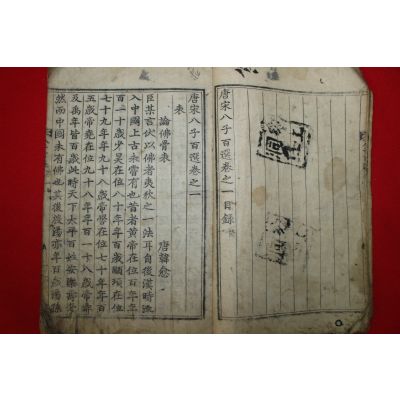 唐宋八子百選卷之一目錄
唐宋八子百選卷之一
表
論佛骨表 唐韓愈
臣某言伏以佛者夷狄之一法耳自後漢時流
入中國上古未嘗有也昔者黃帝在位百年年
百一十歲少昊在位八十年年百歲顓頊在位
七十九年年九十八歲帝嚳在位七十年年百
五歲帝堯在位九十八年年百一十八歲帝舜
及禹年皆百歲此時天下太平百姓安樂壽考
然而中國未有佛也其後殷湯亦年百歲湯孫